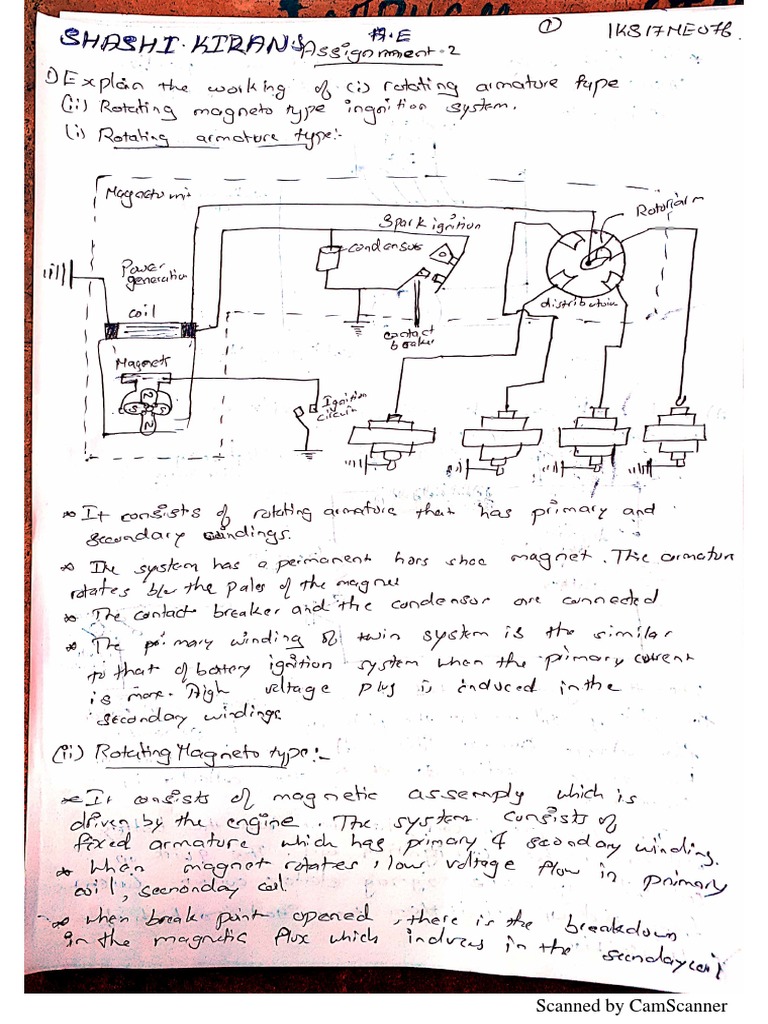 SHASHI.KIRAN S A.E ① 1KS17ME076
Assignment-2
1) Explain the working of (i) rotating armature type
(ii) Rotating magneto type ingnition system.
(i) Rotating armature type:-
Magneto unit
Spark ignition
Rotor arm
condensor
Power
generation
coil
distributor
contact
breaker
Magnet
Ignition
circuit
* It consists of rotating armature that has primary and
secondary windings.
* The system has a permanent hors shoe magnet. The armature
rotates b/w the Poles of the magnet
* The contact breaker and the condensor are connected
* The primary winding of twin system is the similar
to that of battery ignition system when the primary current
is more. High voltage plug is induced in the
secondary windings.
(ii) Rotating Magneto type:-
* It consists of magnetic assemply which is
driven by the engine. The system consists of
fixed armature which has primary & secondary winding.
* When magnet rotates, low voltage flow in primary
coil, secnonday coil.
* When break point opened, there is the breakdown
in the magnetic flux which induces in the seconday coil
Scanned by CamScanner